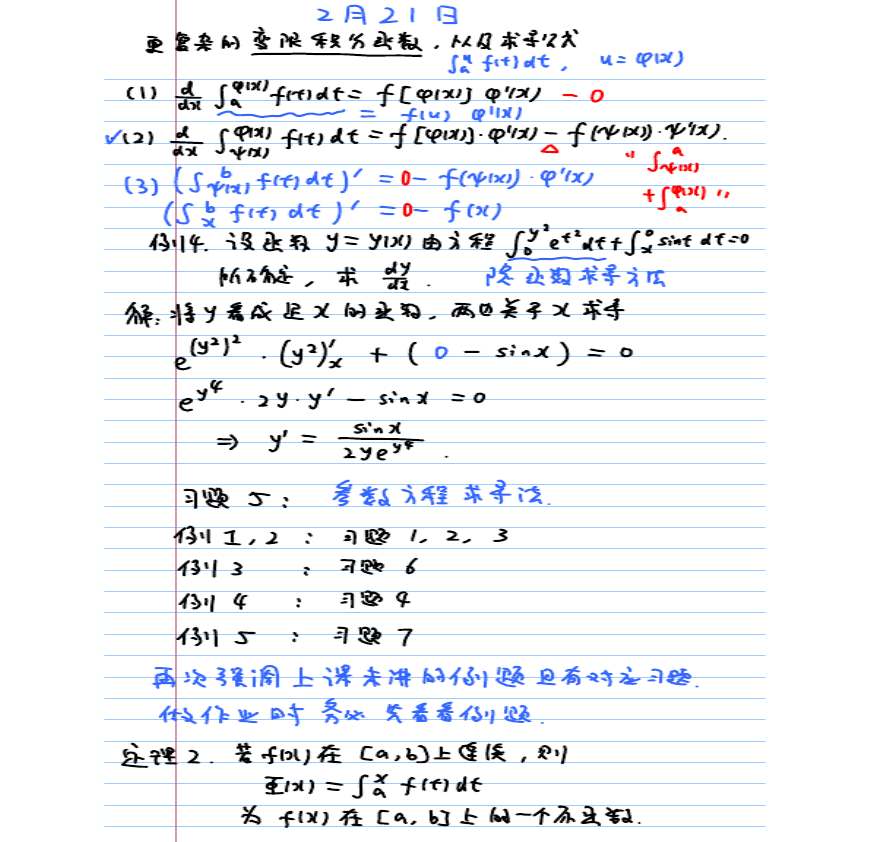 2月21日
更复杂的变限积分函数,以及求导公式
∫ₐᵘ f(t)dt, u=φ(x)
(1) d/dx ∫ₐ^φ(x) f(t)dt = f[φ(x)] φ'(x) - 0
= f(u) φ'(x)
✓(2) d/dx ∫_ψ(x)^φ(x) f(t)dt = f[φ(x)]·φ'(x) - f(ψ(x))·ψ'(x).
△ "∫_ψ(x)^a
(3) (∫_ψ(x)^b f(t)dt)' = 0- f(ψ(x))·φ'(x)
+∫ₐ^φ(x)"
(∫ₓ^b f(t)dt)' = 0- f(x)
例14. 设函数 y=y(x) 由方程 ∫₀^y² e^t² dt + ∫ₓ⁰ sint dt=0
所确定, 求 dy/dx. 隐函数求导方法
解:将y看成是x的函数,两边关于x求导
e^(y²)² · (y²)'ₓ + ( 0 - sinx ) = 0
e^y⁴ · 2y·y' - sinx = 0
⇒ y' = sinx / 2ye^y⁴ .
习题 5: 参数方程求导法.
例1,2 : 习题 1, 2, 3
例3 : 习题 6
例4 : 习题 4
例5 : 习题 7
再次强调上课未讲的例题且有对应习题.
做作业时务必先看看例题.
定理2. 若f(x)在[a,b]上连续,则
Φ(x) = ∫ₐˣ f(t)dt
为 f(x)在[a,b]上的一个原函数.